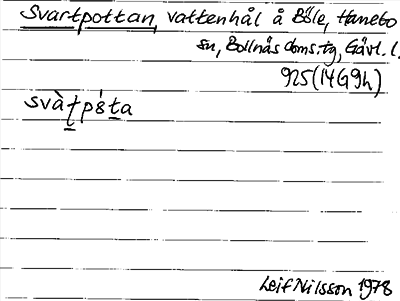 Svartpottan, vattenhål å Böle, Hanebo
sn, Bollnäs doms.tg, Gävl. l.
925 (14G9h)
svàt̲pó̈t̲a
Leif Nilsson 1978